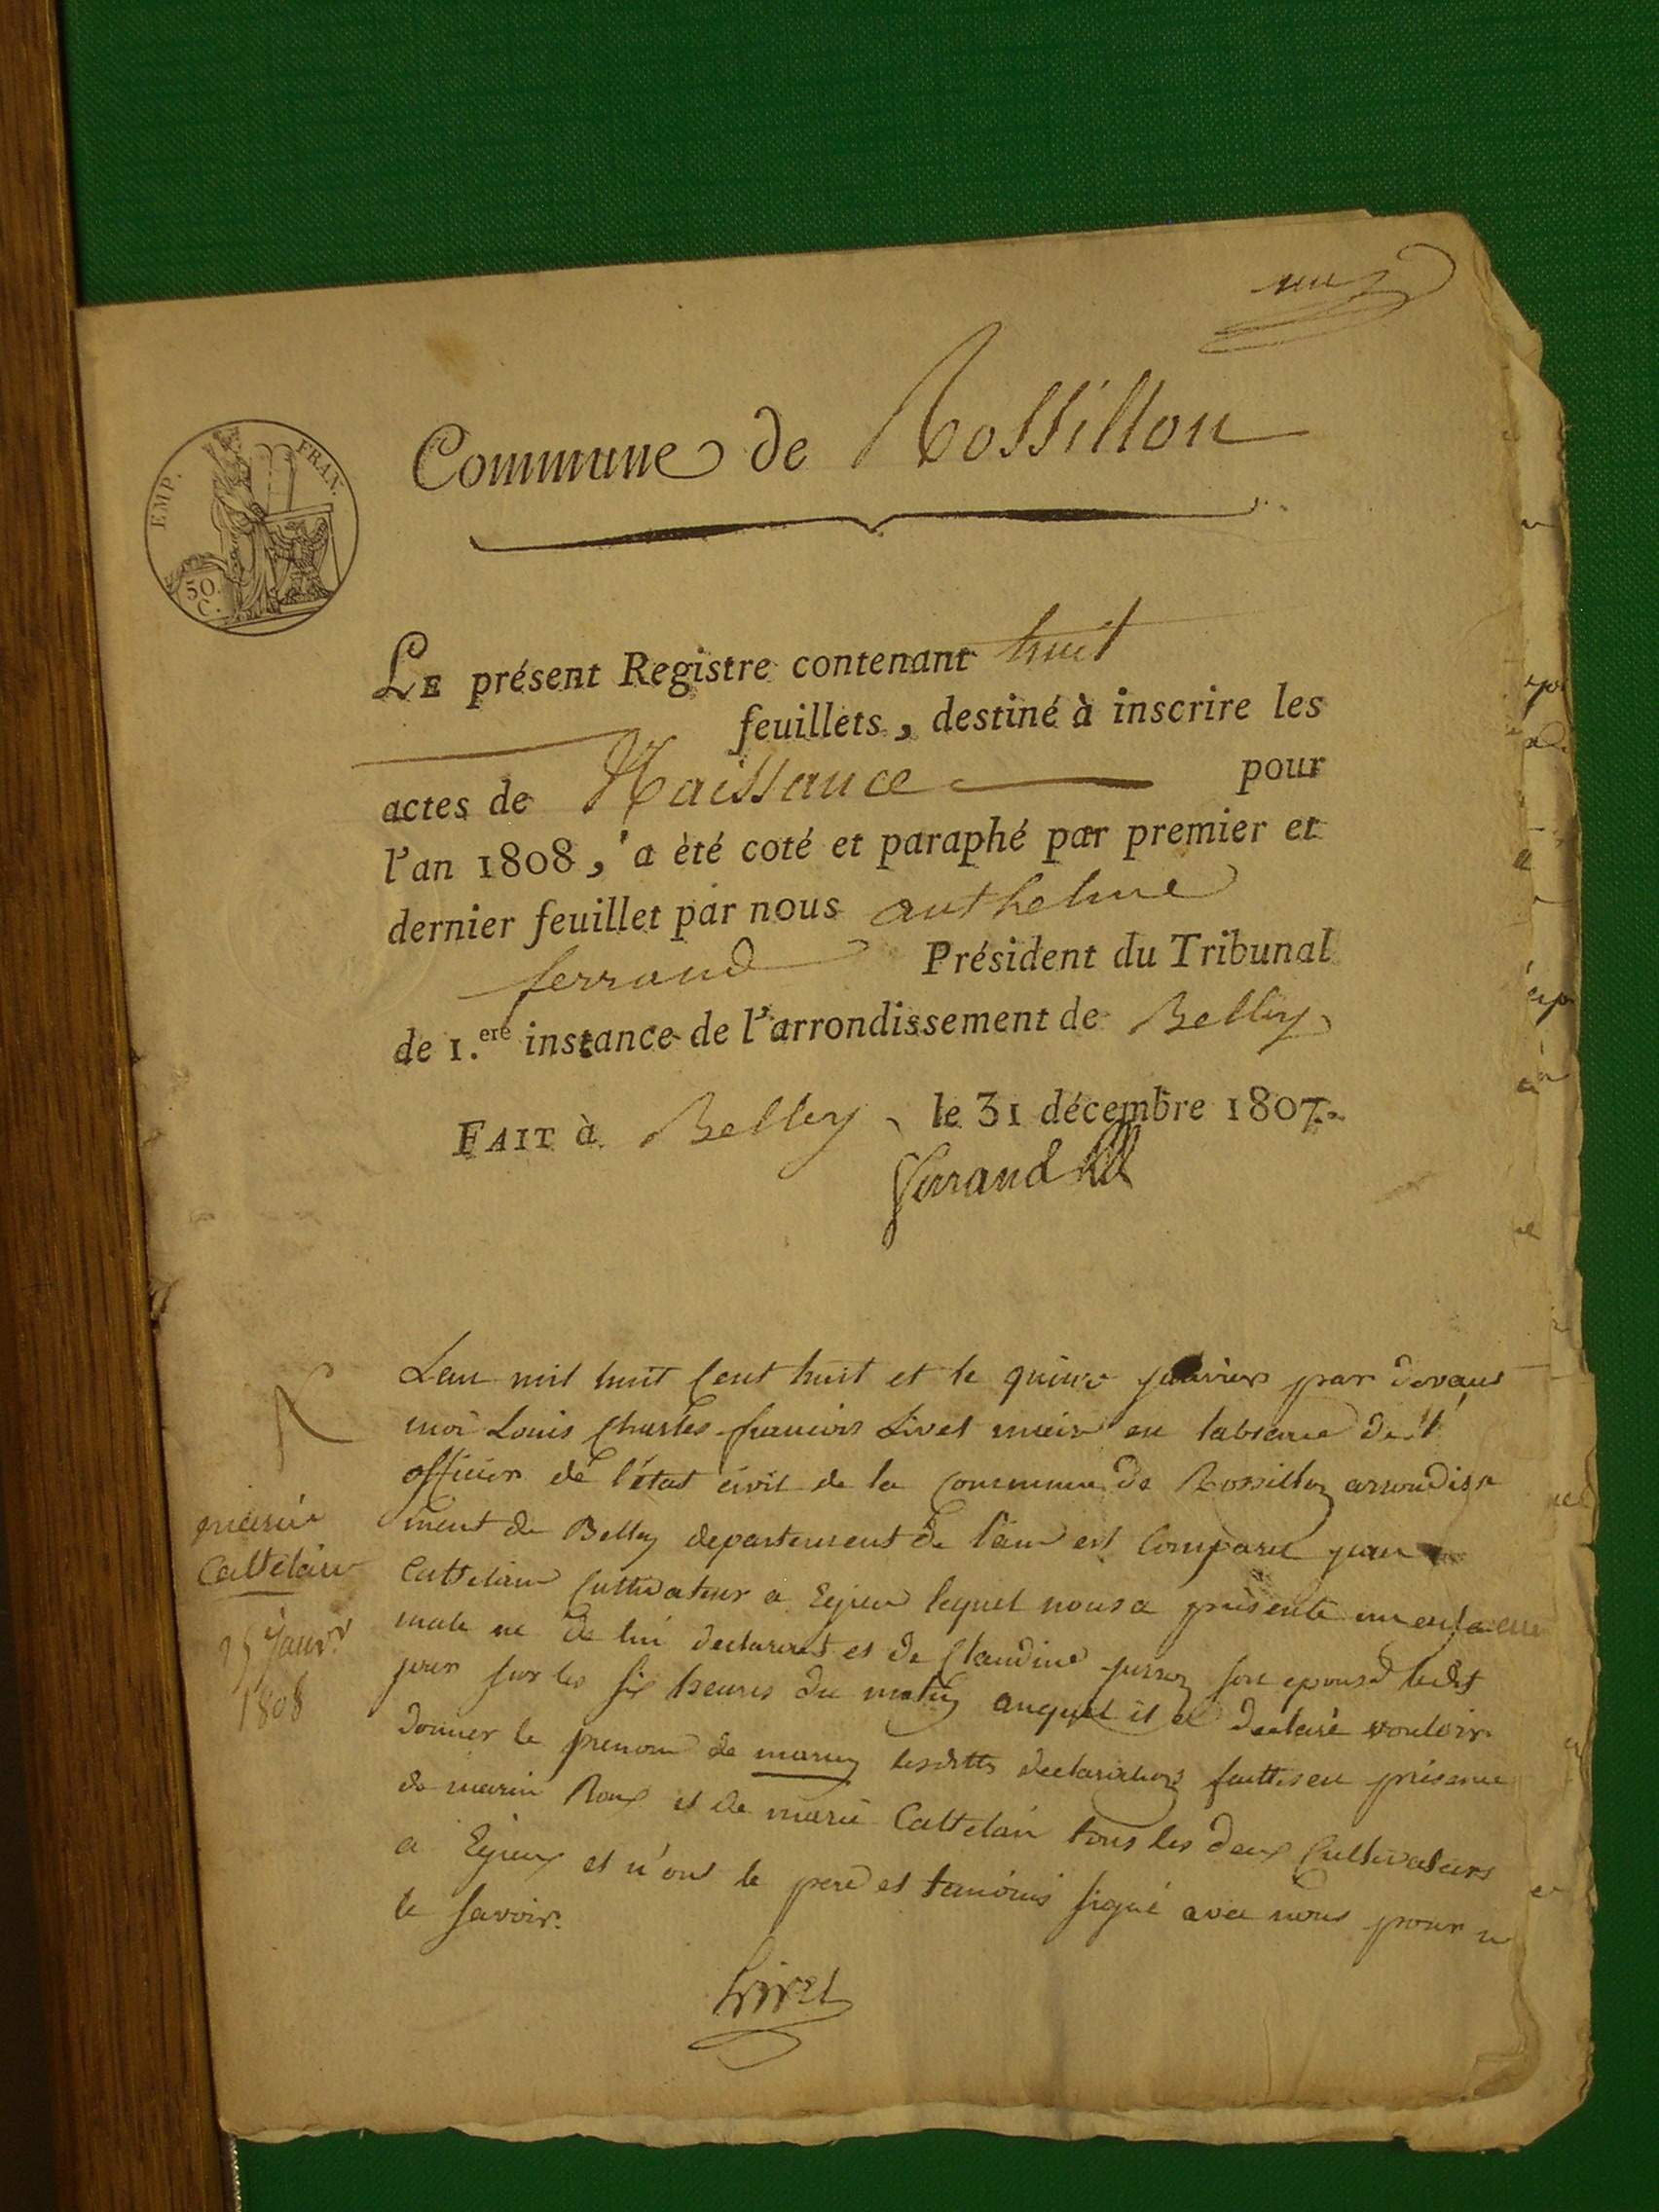 un
Commune de Rossillon
EMP. FRAN.
50.
C.
LE présent Registre contenant huit
feuillets, destiné à inscrire les
actes de Naissance pour
l'an 1808, a èté coté et paraphé par premier et
dernier feuillet par nous anthelme
ferrand Président du Tribunal
de 1.ere instance de l'arrondissement de Belley
FAIT à Belley, le 31 décembre 1807.
Ferrand
N
Lan mil huit Cent huit et le quinze janvier par devant
moi Louis Charles françois Livet maire en labsence de l'
officier de l'état civil de la Commune de Rossillon arrondisse
ment de Belley departement de l'ain est Comparu jean
Cattelain Cultivateur a Egieu lequel nous a présenté un enfant
male né de lui declarant et de Claudine son epouse ledit
jour sur les six heures du matin auquel il a declaré vouloir
donner le prenom de marin lesdittes declarations faittes en présence
de marin Roux et de marie Cattelain tous les deux Cultivateurs
a Egieux et n'ont le pere et temoins signé avec nous pour ne
le savoir.
Livet
Cattelain
15 Janvr
1808